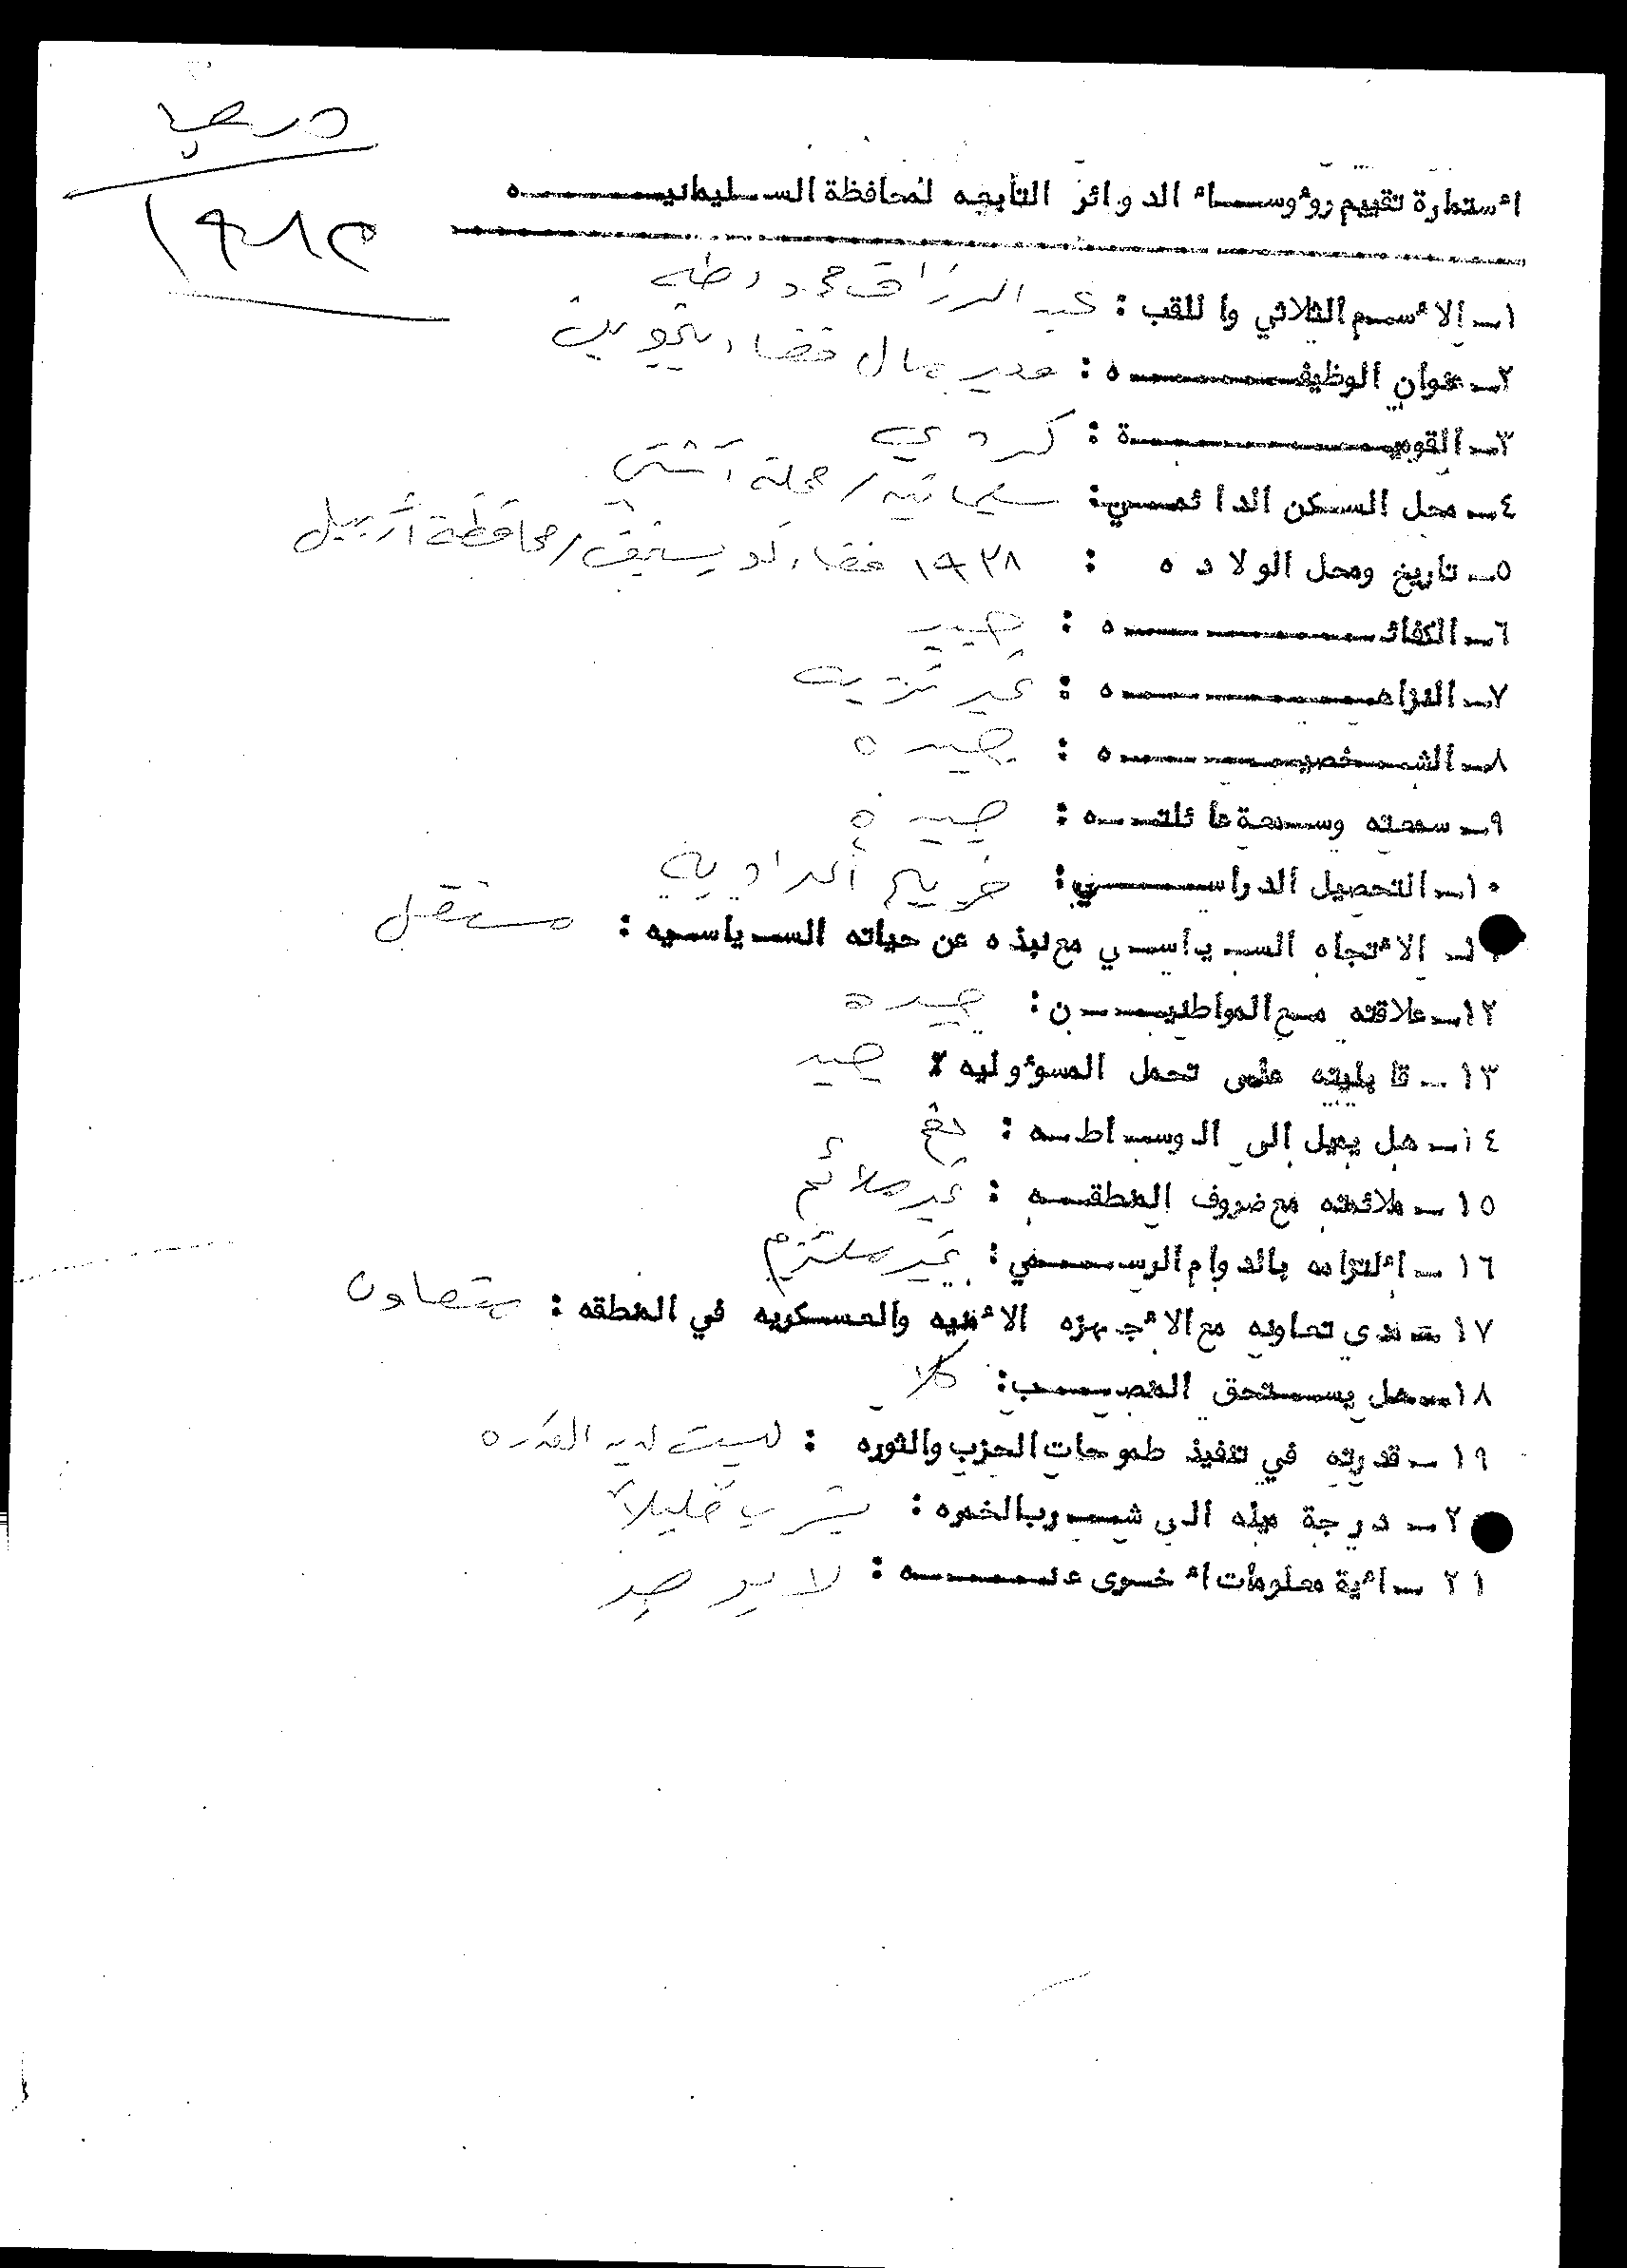 استمارة تقييم رؤوساء الدوائر التابعه لمحافظة السليمانيه
١ـ الاسم الثلاثي واللقب : عبد الرزاق محمود طه
٢ـ عنوان الوظيفه : مدير مال قضاء بنجوين
٣ـ القومية : كردي
٤ـ محل السكن الدائمي : سليمانيه / محلة آشتي
٥ـ تاريخ ومحل الولاده : ١٩٣٨ قضاء كويسنجق / محافظة أربيل
٦ـ الكفائه : جيد
٧ـ النزاهه : غير نزيه
٨ـ الشخصيه : جيده
٩ـ سمعته وسمعة عائلته : جيده
١٠ـ التحصيل الدراسي : خريج أعدادية
ـ الاتجاه السياسي مع نبذه عن حياته السياسيه : مستقل
١٢ـ علاقته مع المواطنين : جيده
١٣ـ قابليته على تحمل المسوؤوليه : جيد
١٤ـ هل يميل الى الوساطه : نعم
١٥ـ ملائمته مع ضروف المنطقه : غير ملائم
١٦ـ التزامه بالدوام الرسمي : غير ملتزم
١٧ـ مدى تعاونه مع الاجهزه الامنيه والعسكريه في المنطقه : متعاون
١٨ـ هل يستحق المنصب : كلا
١٩ـ قدرته في تنفيذ طموحات الحزب والثوره : ليست لديه القدره
٢ـ درجة ميله الى شرب الخمره : يشرب قليلاً
٢١ـ اية معلومات اخرى عنه : لا يوجد